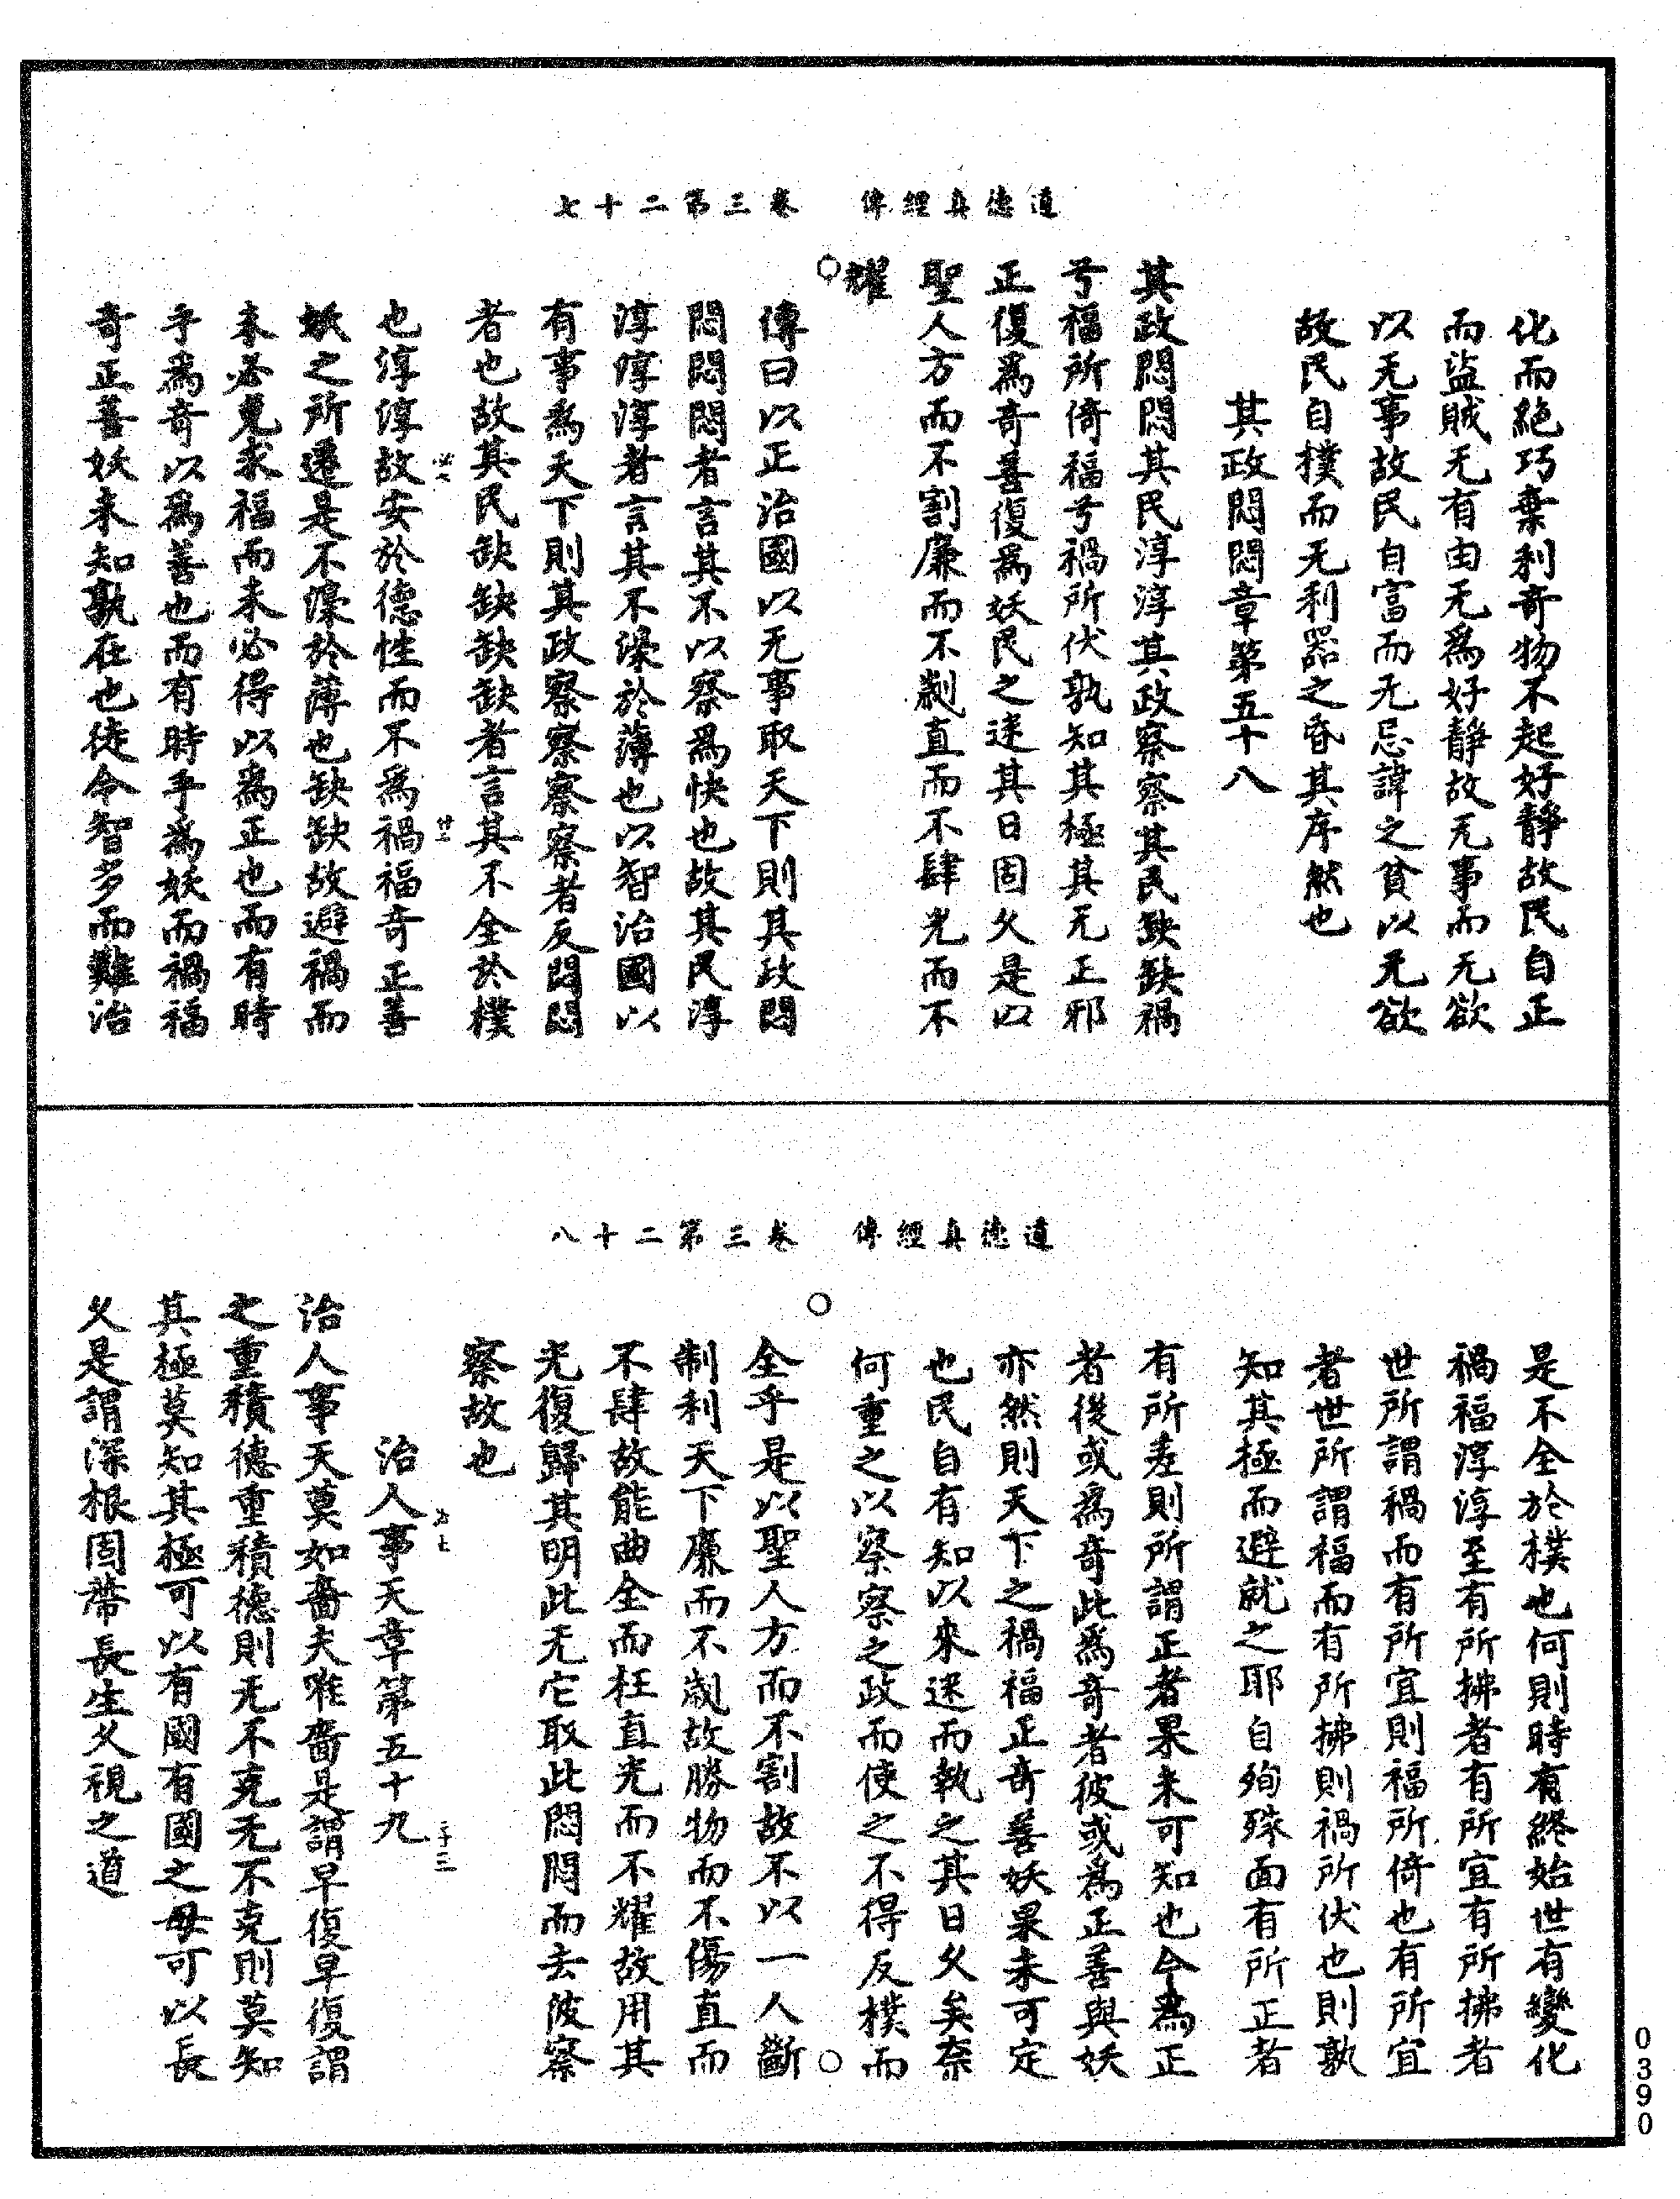 道德真經傳　卷三第二十七
化而絕巧棄利奇物不起好靜故民自正
而盜賊无有由无為好靜故无事而无欲
以无事故民自富而无忌諱之貧以无欲
故民自樸而无利器之昏其序然也
其政悶悶章第五十八
其政悶悶其民淳淳其政察察其民缺缺禍
兮福所倚福兮禍所伏孰知其極其无正邪
正復為奇善復為妖民之迷其日固久是以
聖人方而不割廉而不劌直而不肆光而不
耀
傳曰以正治國以无事取天下則其政悶
悶悶悶者言其不以察為快也故其民淳
淳淳淳者言其不澆於薄也以智治國以
有事為天下則其政察察察察者反悶悶
者也故其民缺缺缺缺者言其不全於樸
也淳淳故安於德性而不為禍福奇正善
妖之所遷是不澆於薄也缺缺故避禍而
未必免求福而未必得以為正也而有時
乎為奇以為善也而有時乎為妖而禍福
奇正善妖未知孰在也徒令智多而難治
道德真經傳　卷三第二十八
是不全於樸也何則時有終始世有變化
禍福淳淳至有所拂者有所宜有所拂者
世所謂禍而有所宜則福所倚也有所宜
者世所謂福而有所拂則禍所伏也則孰
知其極而避就之耶自殉殊面有所正者
有所差則所謂正者果未可知也今為正
者後或為奇此為奇者彼或為正善與妖
亦然則天下之禍福正奇善妖果未可定
也民自有知以來迷而執之其日久矣奈
何重之以察察之政而使之不得反樸而
全乎是以聖人方而不割故不以一人斷
制利天下廉而不劌故勝物而不傷直而
不肆故能曲全而枉直光而不耀故用其
光復歸其明此无它取此悶悶而去彼察
察故也
治人事天章第五十九
治人事天莫如嗇夫唯嗇是謂早復早復謂
之重積德重積德則无不克无不克則莫知
其極莫知其極可以有國有國之母可以長
久是謂深根固蔕長生久視之道
0390